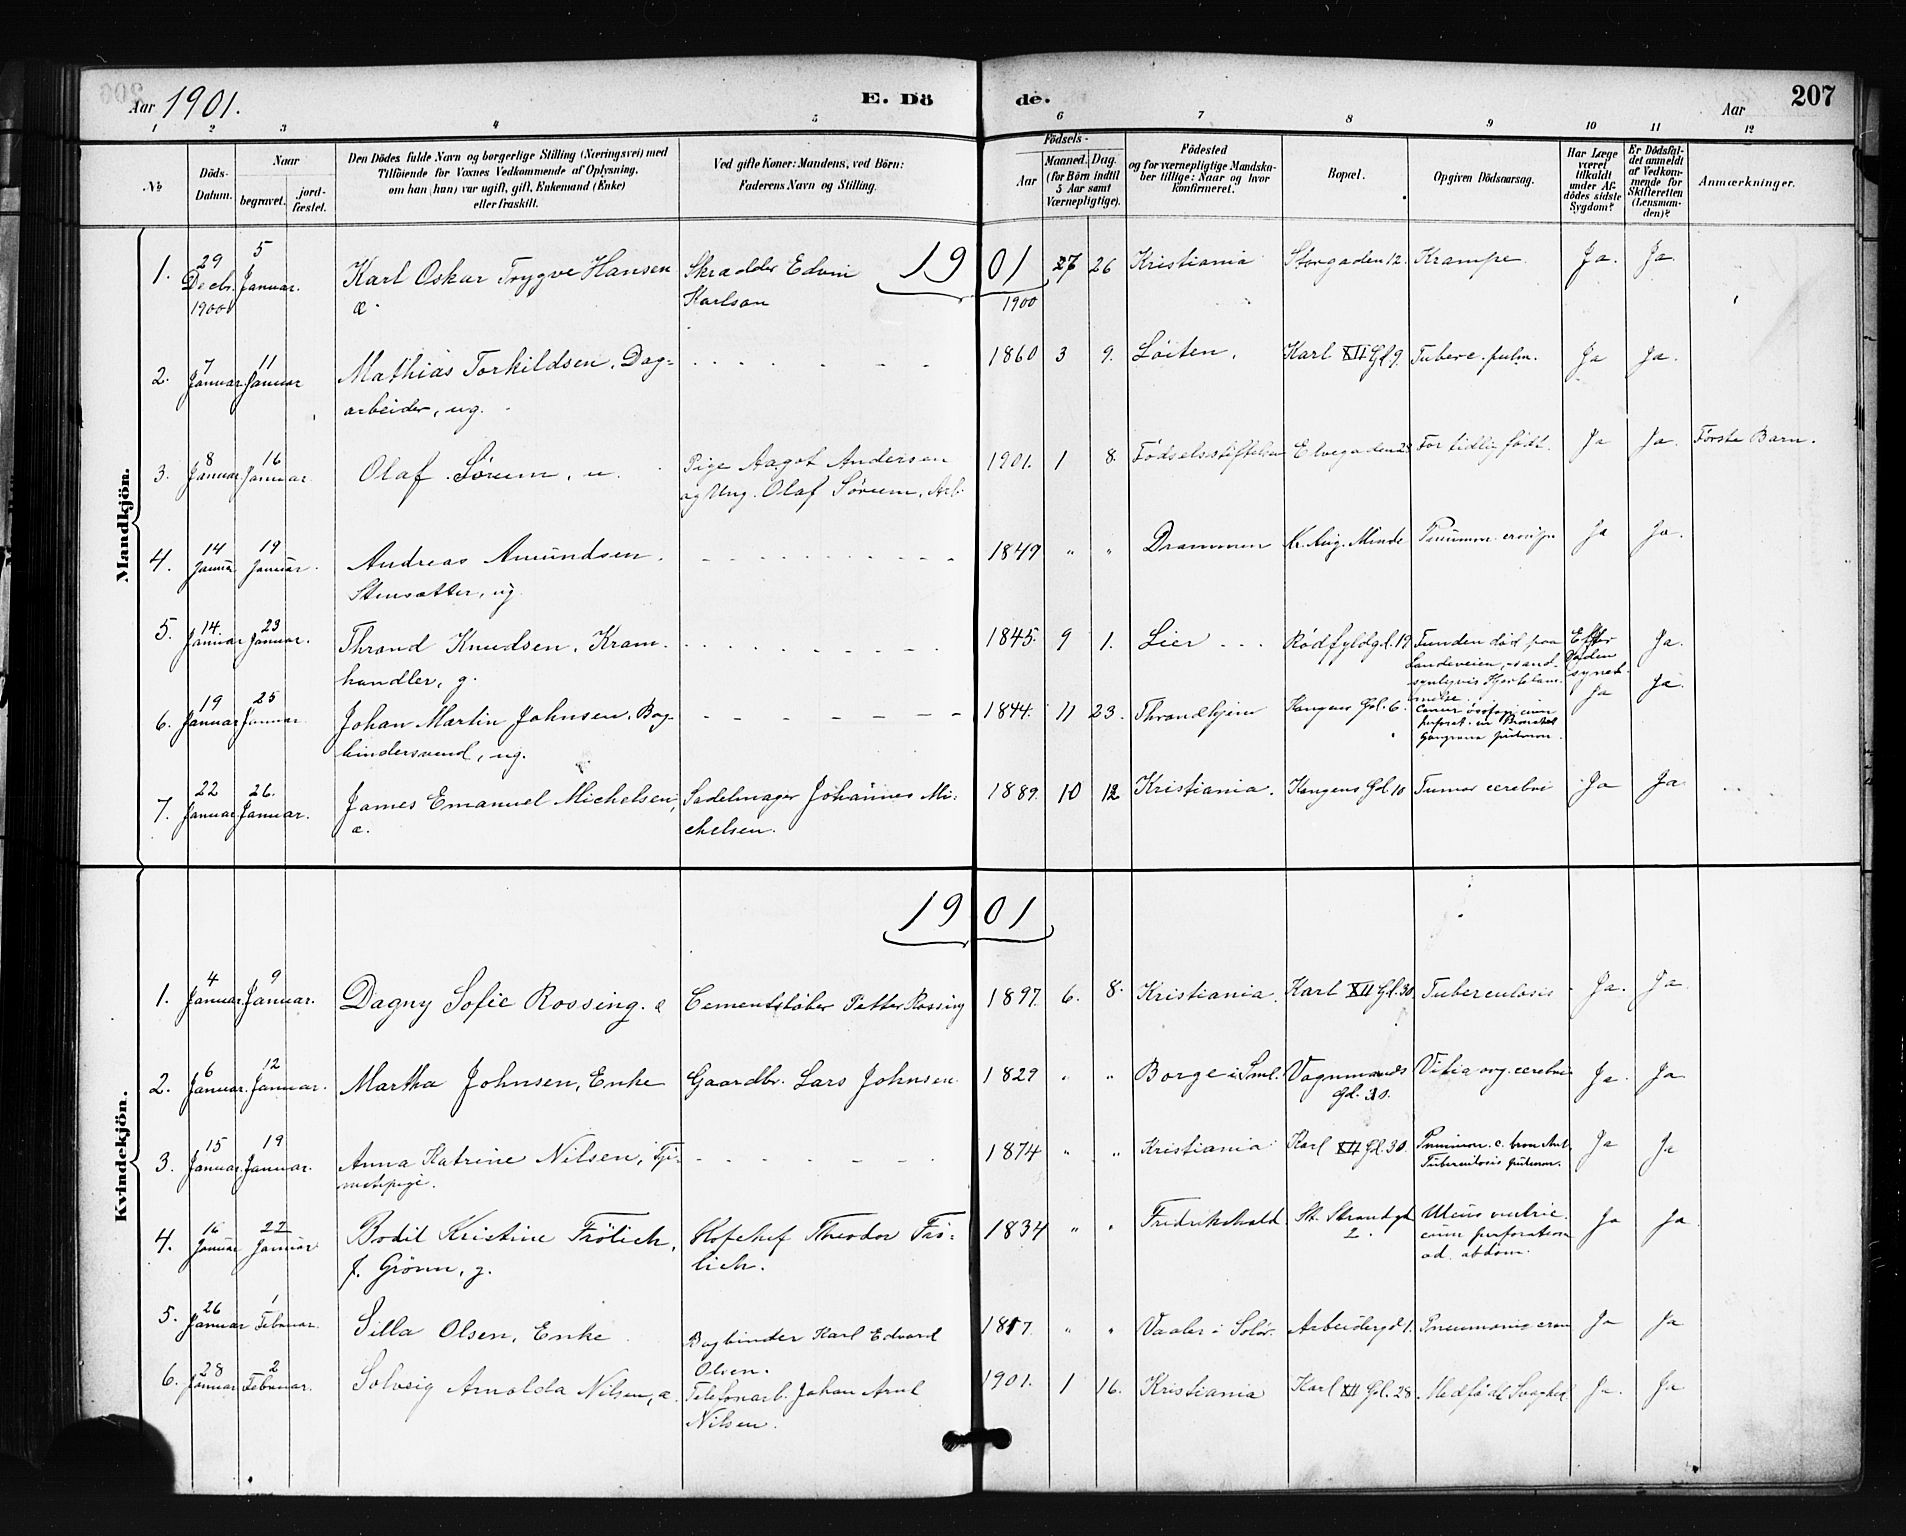 Aar 1901.
E. Dö de.
Aar
207
1 2 3 4 5 6 7 8 9 10 11 12
No
Döds-Datum.
Naar
begravet.
jord-fæstet.
Den Dödes fulde Navn og borgerlige Stilling (Næringsvei) med
Tilföiende for Voxnes Vedkommende af Oplysning,
om han (hun) var ugift, gift, Enkemand (Enke)
eller fraskilt.
Ved gifte Koner: Mandens, ved Börn:
Faderens Navn og Stilling.
Födsels-
Aar
Maaned. Dag.
(for Börn indtil
5 Aar samt
Værnepligtige).
Födested
og for værnepligtige Mandska-
ber tillige: Naar og hvor
konfirmeret.
Bopæl.
Opgiven Dödsaarsag.
Har Læge
været
tilkaldt
under Af-
dödes sidste
Sygdom?
Er Dödsfal-
det anmeldt
af Vedkom-
mende for
Skifteretten
(Lensman-
den)?
Anmærkninger.
Mandkjön.
1901
1. 29 Decbr. 1900 5 Januar. Karl Oskar Trygve Hansen Skrædder Edvin 27 26 Kristiania Storgaden 12. Krampe Ja. Ja.
æ. Karlson 1900
2. 7 Januar 11 Januar Mathias Torkildsen, Dag- 1860 3 9. Löiten. Karl XII Gd 9. Tuberc. pulm. Ja Ja.
arbeider, ug.
3. 8 Januar 16 Januar. Olaf Sörum, u. Pige Aagot Andersen 1901. 1 8. Födselsstiftelsen Elvegaden For tidlig födt. Ja Ja. Förste Barn.
og Ung. Olaf Sörum, Arb.
4. 14 Januar 19 Januar. Andreas Amundsen. 1849 " " Drammen Kr. Aug. Minde Ja Ja.
Stensætter, ug.
5. 14 Januar 23 Januar. Thrond Knudsen, Kram- 1845. 9 1. Lier Rödfyldgd. 19 Funden död paa Efter Ja.
handler, g. Landeveien, sand- Döden
synligvis Hjertelam- synet.
melse.
6. 19 Januar 25 Januar Johan Martin Johnsen, Bog- 1844. 11 23. Throndhjem Kongens Gd. 6. Ja Ja.
bindersvend, ug.
7. 22 Januar 26. Januar. James Emanuel Michelsen, Sadelmager Johannes Mi- 1889. 10 12 Kristiania. Kongens Gd 10 Tumor cerebri Ja Ja
æ. chelsen.
Kvindekjön.
1901
1. 4 Januar. 9 Januar. Dagny Sofie Rossing. æ Cementstöber Petter Rossing 1897. 6. 8. Kristiania. Karl XII Gd. 30 Tuberculosis Ja. Ja
2. 6 Januar. 12 Januar. Martha Johnsen, Enke Gaardbr. Lars Johnsen. 1829 " " Borge i Sml. Vognmands Vitia org. cerebri Ja. Ja
Gd. 30.
3. 15 Januar. 19 Januar. Anna Katrine Nilsen, Tje- 1874 " " Kristiania Karl XII Gd. 30. Ja Ja
nestepige. Tuberculosis pulmon.
4. 16 Januar 22 Januar Bodil Kristine Frölich, Kofchef Theodor Frö- 1834 " " Fredrikshald St. Strandgd. Ulcus ventric. Ja Ja
f. Grönn, g. lich. 2. cum perforatione
ad. abdom.
5. 26 Januar 1 Februar. Silla Olsen, Enke Bogbinder Karl Edvard 1817. " " Vaaler i Solör. Arbeidergd 1. Pneumonia croup Ja Ja
Olsen.
6. 28 Januar 2 Februar. Solveig Arnolda Nilsen, æ. Telefonarb. Johan Arnt 1901. 1 16. Kristiania Karl XII Gd. 28 Medfödt Svaghed Ja. Ja
Nilsen.